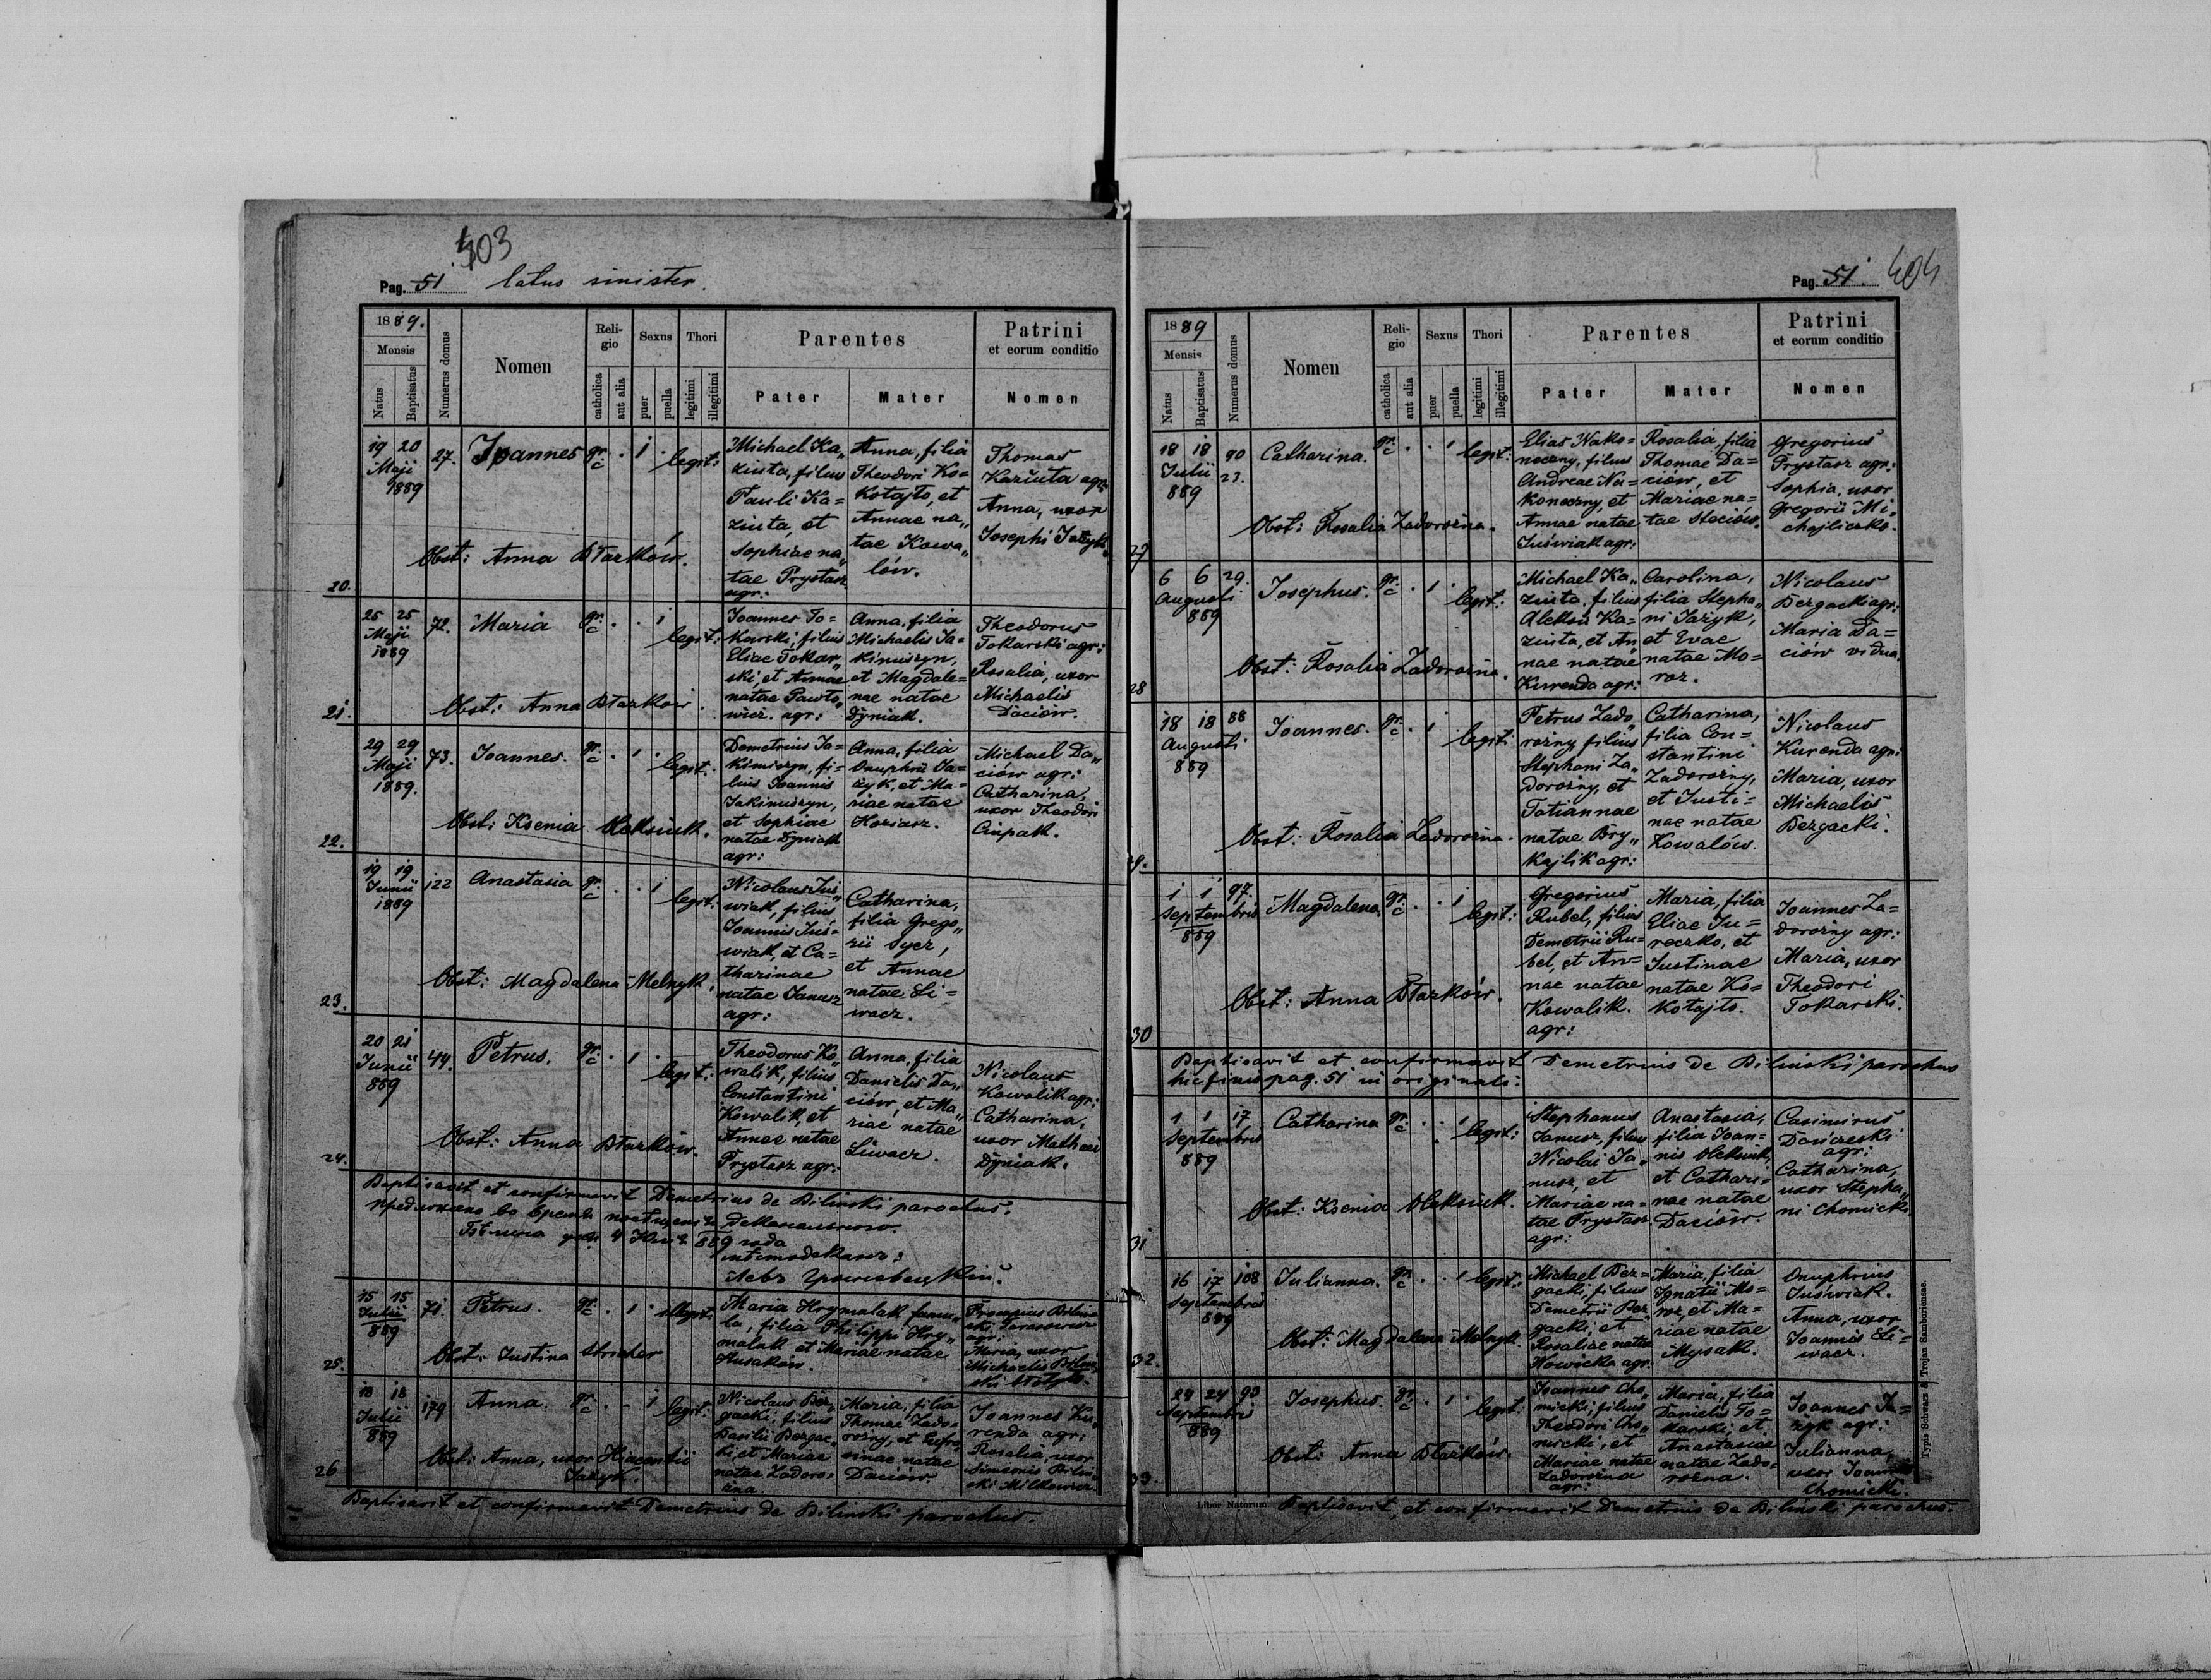 403
Pag. 51 latus sinister.
1889.
Mensis
Natus
Baptisatus
Numerus domus
Nomen
Religio
catholica
aut alia
Sexus
puer
puella
Thori
legitimi
illegitimi
Parentes
Pater
Mater
Patrini
et eorum conditio
Nomen
20.
19 20
Maji
1889
27.
Joannes
gr. c
1
legit:
Michael Ka„
ziuta, filius
Pauli Ka=
ziuta, et
Sophiae na„
tae Prystasz
agr.:
Anna, filia
Theodori Ko=
Kotajło, et
Annae na„
tae Kowa„
lów.
Thomas
Kaziuta agr:
Anna, uxor
Josephi Jażyk.
Obst: Anna Błazków.
21.
25 25
Maji
1889
72.
Maria
gr. c
1
legit:
Joannes To=
karski, filius
Eliae Tokar„
ski, et Annae
natae Pawło„
wicz. agr:
Anna, filia
Michaelis Ja=
kimiszyn,
et Magdale=
nae natae
Dyniak.
Theodorus
Tokarski agr:
Rosalia, uxor
Michaelis
Daciów.
Obst: Anna Błazków.
22.
29 29
Maji
1889.
73.
Joannes.
gr. c
1
legit:
Demetrius Ja=
kimiszyn, fi=
lius Joannis
Jakimiszyn,
et Sophiae
natae Dyniak
agr:
Anna, filia
Onuphrii Ja=
żyk, et Ma=
riae natae
Koziarz.
Michael Da„
ciów agr:
Catharina,
uxor Theodori
Ciupak.
Obst: Ksenia Oleksiuk.
23.
19 19
Junii
1889
122
Anastasia
gr. c
1
legit:
Nicolaus Juś„
wiak, filius
Joannis Juś=
wiak, et Ca=
tharinae
natae Janusz
agr:
Catharina,
filia Grego„
rii Sycz,
et Annae
natae Li=
wacz.
Obst: Magdalena Melnyk.
24.
20 21
Junii
889
44.
Petrus.
gr. c
1
legit:
Theodorus Ko„
walik, filius
Constantini
Kowalik, et
Annae natae
Prystasz agr:
Anna, filia
Danielis Da„
ciów, et Ma„
riae natae
Liwacz.
Nicolaus
Kowalik agr:
Catharina,
uxor Mathaei
Dyniak.
Obst: Anna Błazków.
Baptisavit et confirmavit Demetrius de Bilinski parochus.
25.
15 15
Julii
889
71.
Petrus.
gr. c
1
illegit:
Maria Hrymalak famu„
la, filia Philippi Hry„
malak et Mariae natae
Husaków.
agr:
Maria, uxor
Michaelis Bilin„
ski
Obst: Justina
26
18 18
Julii
889
179
Anna.
gr. c
1
legit:
Nicolaus Bez„
gacki, filius
Basilii Bezgac„
ki, et Mariae
natae Zadoro„
żna.
Maria, filia
Thomae Zado=
rożny, et Eufro„
sinae natae
Daciów.
Joannes Ku„
renda agr:
Rosalia, uxor
Simeonis Bilin„
ski
Obst: Anna, uxor Hiacentii
Jażyk.
Baptisavit et confirmavit Demetrius de Bilinski parochus.
Pag. 51. 404
1889
Mensis
Natus
Baptisatus
Numerus domus
Nomen
Religio
catholica
aut alia
Sexus
puer
puella
Thori
legitimi
illegitimi
Parentes
Pater
Mater
Patrini
et eorum conditio
Nomen
27
18 18
Julii
889
90
23.
Catharina.
gr. c
1
legit:
Elias Nako=
neczny, filius
Andreae Na=
koneczny, et
Annae natae
Juświak agr:
Rosalia, filia
Thomae Da=
ciów, et
Mariae na=
tae Steciów.
Gregorius
Prystasz agr:
Sophia, uxor
Gregorii Mi„
chajliczko.
Obst: Rosalia Zadorożna.
28
6 6
Augusti
889
29.
Josephus.
gr. c
1
legit:
Michael Ka„
ziuta, filius
Aleksii Ka=
ziuta, et An„
nae natae
Kurenda agr:
Carolina,
filia Stepha„
ni Jażyk,
et Evae
natae Mo=
roz.
Nicolaus
Bezgacki agr:
Maria Da=
ciów vidua.
Obst: Rosalia Zadorożna.
29.
18 18
Augusti
889
88
Joannes.
gr. c
1
legit:
Petrus Zado„
rożny, filius
Stephani Za„
dorożny, et
Tatiannae
natae Bry„
kajlik agr:
Catharina,
filia Con=
stantini
Zadorożny,
et Justi=
nae natae
Kowalów.
Nicolaus
Kurenda agr:
Maria, uxor
Michaelis
Bezgacki.
Obst: Rosalia Zadorożna.
30
1 1
Septembris
889
97.
Magdalena.
gr. c
1
legit:
Gregorius
Rubel, filius
Demetrii Ru=
bel, et An=
nae natae
Kowalik.
agr:
Maria, filia
Eliae Ju=
reczko, et
Justinae
natae Ko=
kotajło.
Joannes Za=
dorożny agr:
Maria, uxor
Theodori
Tokarski.
Obst: Anna Błazków.
Baptisavit et confirmavit Demetrius de Bilinski parochus
hic finis pag. 51 in originali.
31
1 1
Septembris
889
17
Catharina
gr. c
1
legit:
Stephanus
Janusz, filius
Nicolai Ja„
nusz, et
Mariae na=
tae Prystasz
agr:
Anastasia,
filia Joan=
nis Oleksiuk,
et Cathari=
nae natae
Daciów.
Casimirus
agr:
Catharina,
uxor Stepha„
ni Chomicki
Obst: Ksenia Oleksiuk.
32.
16 17
Septembris
889
108
Julianna.
gr. c
1
legit:
Michael Bez=
gacki, filius
Demetrii Bez
gacki, et
Rosaliae natae
Nowicka agr.
Maria, filia
Ignatii Mo=
roz, et Ma=
riae natae
Mysak.
Onuphrius
Juświak.
Anna, uxor
Joannis Li=
wacz.
Obst: Magdalena Melnyk.
33.
24 24
Septembris
889
93
Josephus.
gr. c
1
legit:
Joannes Cho„
micki, filius
Theodori Cho„
micki, et
Mariae natae
Zadorożna
agr:
Maria, filia
Danielis To=
karski, et
Anastasiae
natae Zado=
rożna.
Joannes Ja=
żyk agr:
Julianna,
uxor Joannis
Chomicki.
Obst: Anna Błazków.
Liber Natorum Baptisavit, et confirmavit Demetrius de Bilinski parochus.
Typis Schwarz & Trojan Samboriensae.